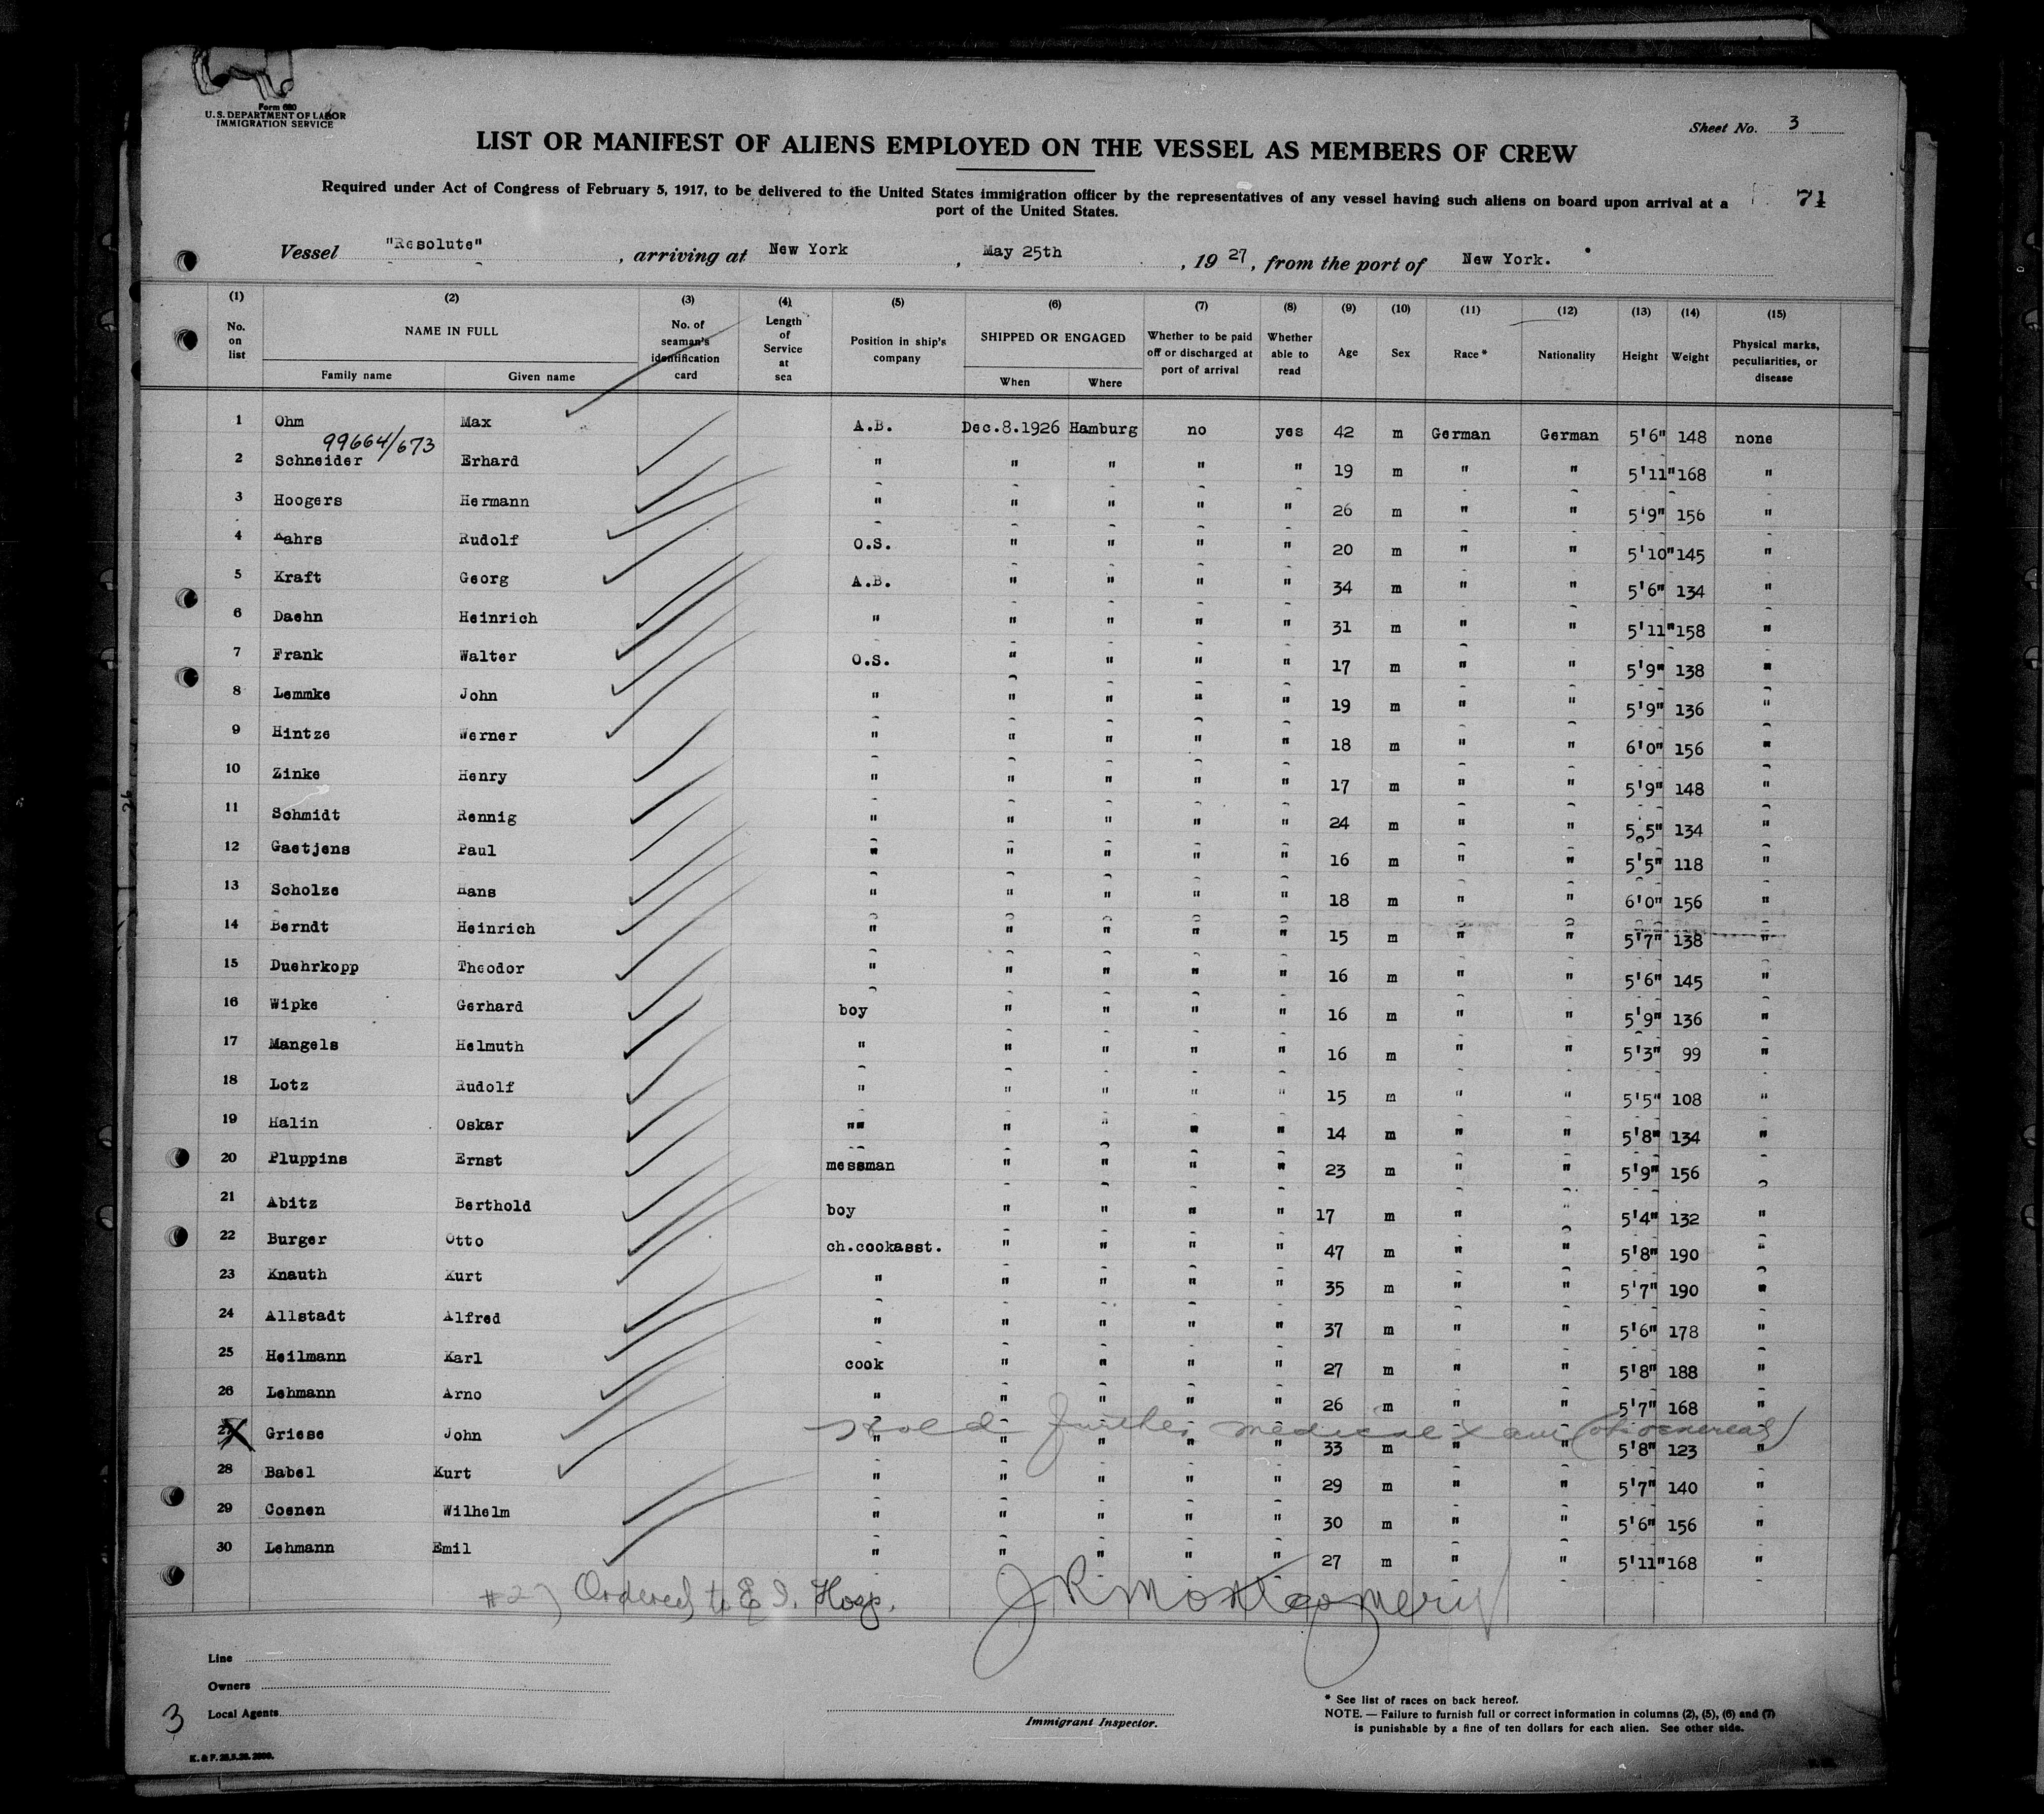 Form 680
U.S. DEPARTMENT OF LABOR
IMMIGRATION SERVICE
Sheet No. 3
LIST OR MANIFEST OF ALIENS EMPLOYED ON THE VESSEL AS MEMBERS OF CREW
Required under Act of Congress of February 5, 1917, to be delivered to the United States immigration officer by the representatives of any vessel having such aliens on board upon arrival at a
port of the United States.
71
Vessel "Resolute", arriving at New York, May 25th, 1927, from the port of New York.
(1) (2) (3) (4) (5) (6) (7) (8) (9) (10) (11) (12) (13) (14) (15)
No. on list NAME IN FULL Family name Given name No. of seaman's identification card Length of Service at sea Position in ship's company SHIPPED OR ENGAGED When Where Whether to be paid off or discharged at port of arrival Whether able to read Age Sex Race* Nationality Height Weight Physical marks, peculiarities, or disease
1 Ohm Max A.B. Dec.8.1926 Hamburg no yes 42 m German German 5'6" 148 none
99664/673
2 Schneider Erhard " " " " " 19 m " " 5'11" 168 "
3 Hoogers Hermann " " " " " 26 m " " 5'9" 156 "
4 Kahrs Rudolf O.S. " " " " 20 m " " 5'10" 145 "
5 Kraft Georg A.B. " " " " 34 m " " 5'6" 134 "
6 Daehn Heinrich " " " " " 31 m " " 5'11" 158 "
7 Frank Walter O.S. " " " " 17 m " " 5'9" 138 "
8 Lemmke John " " " " " 19 m " " 5'9" 136 "
9 Hintze Werner " " " " " 18 m " " 6'0" 156 "
10 Zinke Henry " " " " " 17 m " " 5'9" 148 "
11 Schmidt Rennig " " " " " 24 m " " 5 5" 134 "
12 Gaetjens Paul " " " " " 16 m " " 5'5" 118 "
13 Scholze Hans " " " " " 18 m " " 6'0" 156 "
14 Berndt Heinrich " " " " " 15 m " " 5'7" 138 "
15 Duehrkopp Theodor " " " " " 16 m " " 5'6" 145 "
16 Wipke Gerhard boy " " " " 16 m " " 5'9" 136 "
17 Mangels Helmuth " " " " " 16 m " " 5'3" 99 "
18 Lotz Rudolf " " " " " 15 m " " 5'5" 108 "
19 Halin Oskar "" " " " " 14 m " " 5'8" 134 "
20 Pluppins Ernst messman " " " " 23 m " " 5'9" 156
21 Abitz Berthold boy " " " " 17 m " " 5'4" 132 "
22 Burger Otto ch.cookasst. " " " " 47 m " " 5'8" 190 "
23 Knauth Kurt " " " " " 35 m " " 5'7" 190 "
24 Allstadt Alfred " " " " " 37 m " " 5'6" 178 "
25 Heilmann Karl cook " " " " 27 m " " 5'8" 188 "
26 Lehmann Arno " " " " " 26 m " " 5'7" 168 "
Hold further medical exam
27 Griese John " " " " " 33 m " " 5'8" 123 "
28 Babel Kurt " " " " " 29 m " " 5'7" 140 "
29 Coenen Wilhelm " " " " " 30 m " " 5'6" 156 "
30 Lehmann Emil " " " " " 27 m " " 5'11" 168 "
#27 Ordered to E.I. Hosp. J R Montgomery
Line
Owners
Local Agents
Immigrant Inspector.
* See list of races on back hereof.
NOTE. — Failure to furnish full or correct information in columns (2), (5), (6) and (7)
is punishable by a fine of ten dollars for each alien. See other side.
3